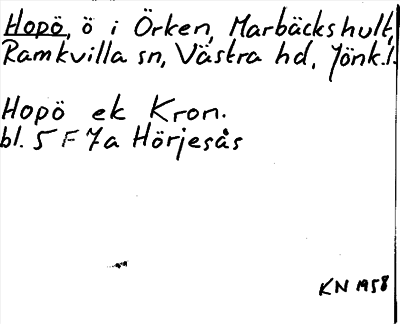 Hopö, ö i Örken, Marbäckshult,
Ramkvilla sn, Västra hd, Jönk.l.
Hopö ek Kron.
bl. 5 F 7a Hörjesås
KN 1958